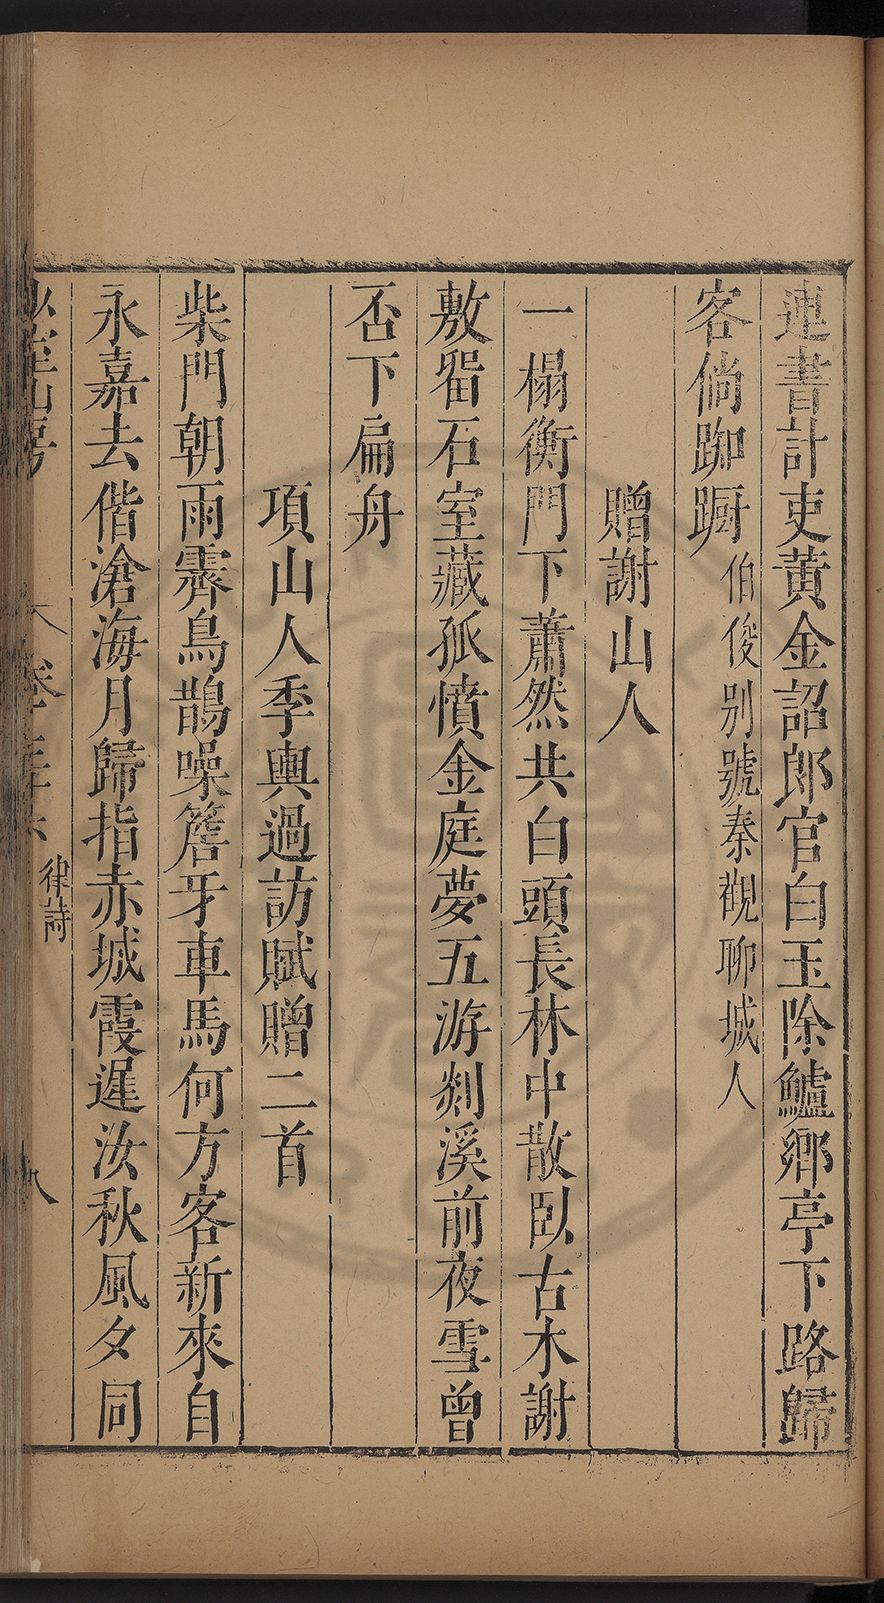 連書計吏黄金詔郎官白玉除鱸鄉亭下路歸
客倘踟蹰伯俊别號秦觀聊城人
贈謝山人
一榻衡門下蕭然共白頭長林中散臥古木謝
敷畱石室藏孤憤金庭夢五游剡溪前夜雪曾
否下扁舟
項山人季輿過訪賦贈二首
柴門朝雨霽烏鵲噪簷牙車馬何方客新來自
永嘉去偕滄海月歸指赤城霞遲汝秋風夕同
山房
律詩
八